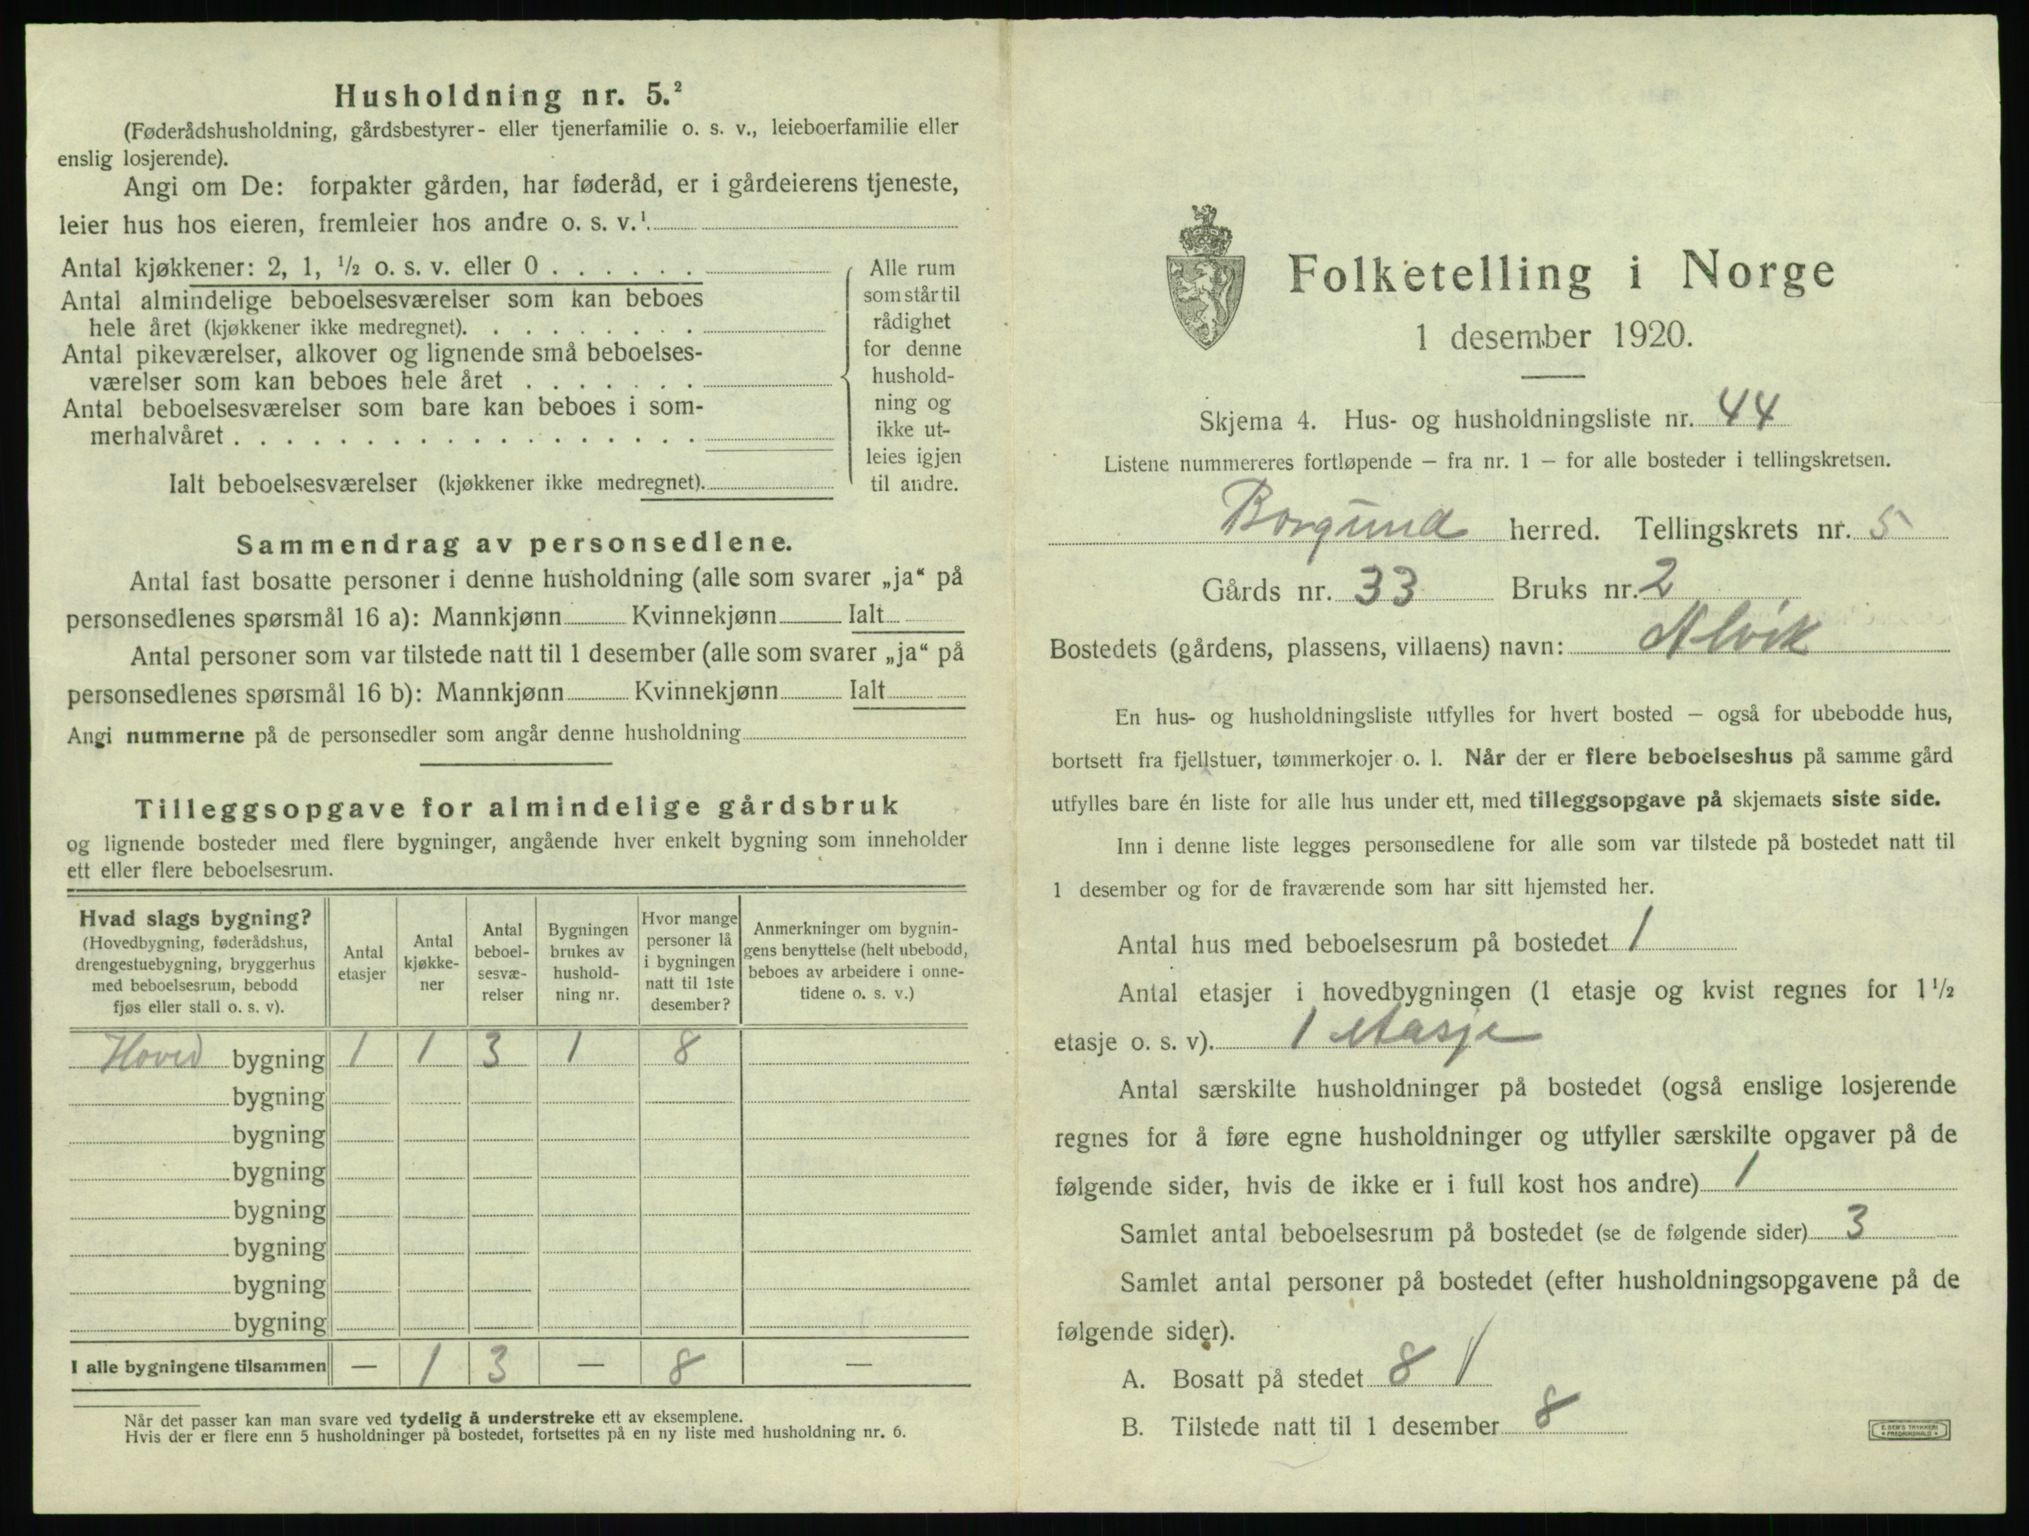 Husholdning nr. 5.²
(Føderådshusholdning, gårdsbestyrer- eller tjenerfamilie o. s. v., leieboerfamilie eller
enslig losjerende).
Angi om De: forpakter gården, har føderåd, er i gårdeierens tjeneste,
leier hus hos eieren, fremleier hos andre o. s. v.¹
Antal kjøkkener: 2, 1, ½ o. s. v. eller 0 . . . . . .
Antal almindelige beboelsesværelser som kan beboes
hele året (kjøkkener ikke medregnet). . . . . . . . .
Antal pikeværelser, alkover og lignende små beboelses-
værelser som kan beboes hele året . . . . . . .
Antal beboelsesværelser som bare kan beboes i som-
merhalvåret . . . . . . . . . . . . . . . . . .
Ialt beboelsesværelser (kjøkkener ikke medregnet).
Alle rum
som står til
rådighet
for denne
hushold-
ning og
ikke ut-
leies igjen
til andre.
Sammendrag av personsedlene.
Antal fast bosatte personer i denne husholdning (alle som svarer „ja“ på
personsedlenes spørsmål 16 a): Mannkjønn Kvinnekjønn Ialt
Antal personer som var tilstede natt til 1 desember (alle som svarer „ja“ på
personsedlenes spørsmål 16 b): Mannkjønn Kvinnekjønn Ialt
Angi nummerne på de personsedler som angår denne husholdning
Tilleggsopgave for almindelige gårdsbruk
og lignende bosteder med flere bygninger, angående hver enkelt bygning som inneholder
ett eller flere beboelsesrum.
Hvad slags bygning?
(Hovedbygning, føderådshus,
drengestuebygning, bryggerhus
med beboelsesrum, bebodd
fjøs eller stall o. s. v).
Antal
etasjer
Antal
kjøkke-
ner
Antal
beboel-
sesvæ-
relser
Bygningen
brukes av
hushold-
ning nr.
Hvor mange
personer lå
i bygningen
natt til 1ste
desember?
Anmerkninger om bygnin-
gens benyttelse (helt ubebodd,
beboes av arbeidere i onne-
tidene o. s. v.)
Hoved bygning 1 1 3 1 8
bygning
bygning
bygning
bygning
bygning
bygning
bygning
I alle bygningene tilsammen — 1 3 — 8 —
Når det passer kan man svare ved tydelig å understreke ett av eksemplene.
Hvis der er flere enn 5 husholdninger på bostedet, fortsettes på en ny liste med husholdning nr. 6.
Folketelling i Norge
1 desember 1920.
Skjema 4. Hus- og husholdningsliste nr. 44
Listene nummereres fortløpende – fra nr. 1 – for alle bosteder i tellingskretsen.
Borgund herred. Tellingskrets nr. 5
Gårds nr. 33 Bruks nr. 2
Bostedets (gårdens, plassens, villaens) navn: Alvik
En hus- og husholdningsliste utfylles for hvert bosted – også for ubebodde hus,
bortsett fra fjellstuer, tømmerkojer o. l. Når der er flere beboelseshus på samme gård
utfylles bare én liste for alle hus under ett, med tilleggsopgave på skjemaets siste side.
Inn i denne liste legges personsedlene for alle som var tilstede på bostedet natt til
1 desember og for de fraværende som har sitt hjemsted her.
Antal hus med beboelsesrum på bostedet 1
Antal etasjer i hovedbygningen (1 etasje og kvist regnes for 1½
etasje o. s. v). 1 etasje
Antal særskilte husholdninger på bostedet (også enslige losjerende
regnes for å føre egne husholdninger og utfyller særskilte opgaver på de
følgende sider, hvis de ikke er i full kost hos andre) 1
Samlet antal beboelsesrum på bostedet (se de følgende sider) 3
Samlet antal personer på bostedet (efter husholdningsopgavene på de
følgende sider).
A. Bosatt på stedet 8 /
B. Tilstede natt til 1 desember 8
E. SEM'S TRYKKERI
FREDRIKSHALD